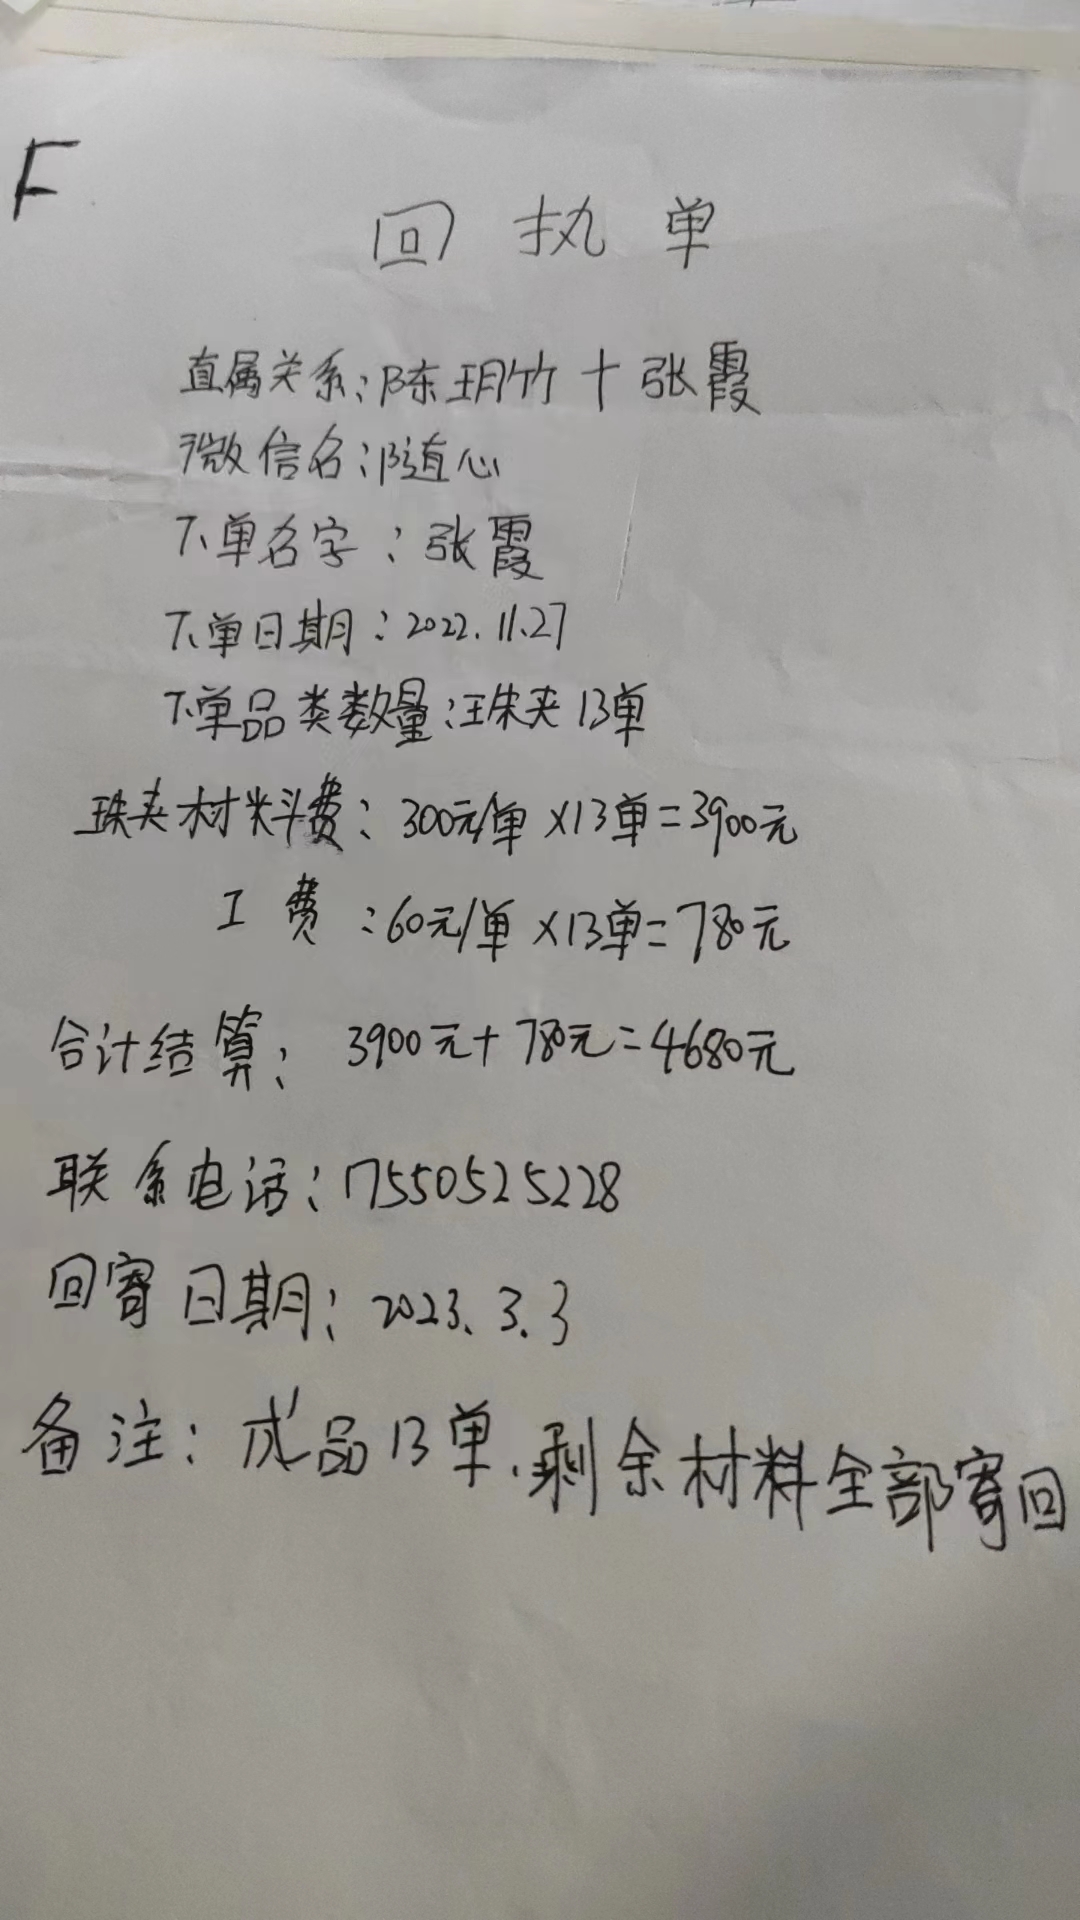 F
回执单
直属关系：陈玥竹＋张霞
微信名：随心
下单名字：张霞
下单日期：2022.11.27
下单品类数量：珠夹13单
珠夹材料费：300元/单×13单=3900元
工费：60元/单×13单=780元
合计结算：3900元+780元=4680元
联系电话：17550525228
回寄日期：2023.3.3
备注：成品13单、剩余材料全部寄回